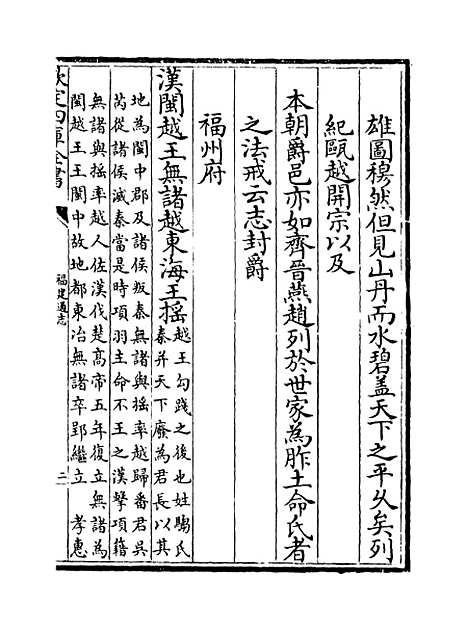 雄圖穆然但見山丹而水碧蓋天下之平乆矣列
紀甌越開宗以及
本朝爵邑亦如齊晉燕趙列於世家為胙土命氏者
之法戒云志封爵
福州府
漢閩越王無諸越東海王揺
越王勾踐之後也姓騶氏
秦并天下廢為君長以其
地為閩中郡及諸侯叛秦無諸與揺率越歸番君吳
芮從諸侯滅秦當是時項羽主命不王之漢擊項籍
無諸與揺率越人佐漢伐楚髙帝五年復立無諸為
閩越王王閩中故地都東冶無諸卒郢繼立 孝惠
欽定四庫全書
福建通志
二